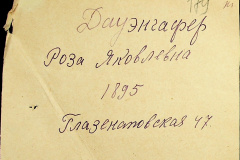 Дауэнгафер
Роза Яковлевна
1895
Глазенаповская 47